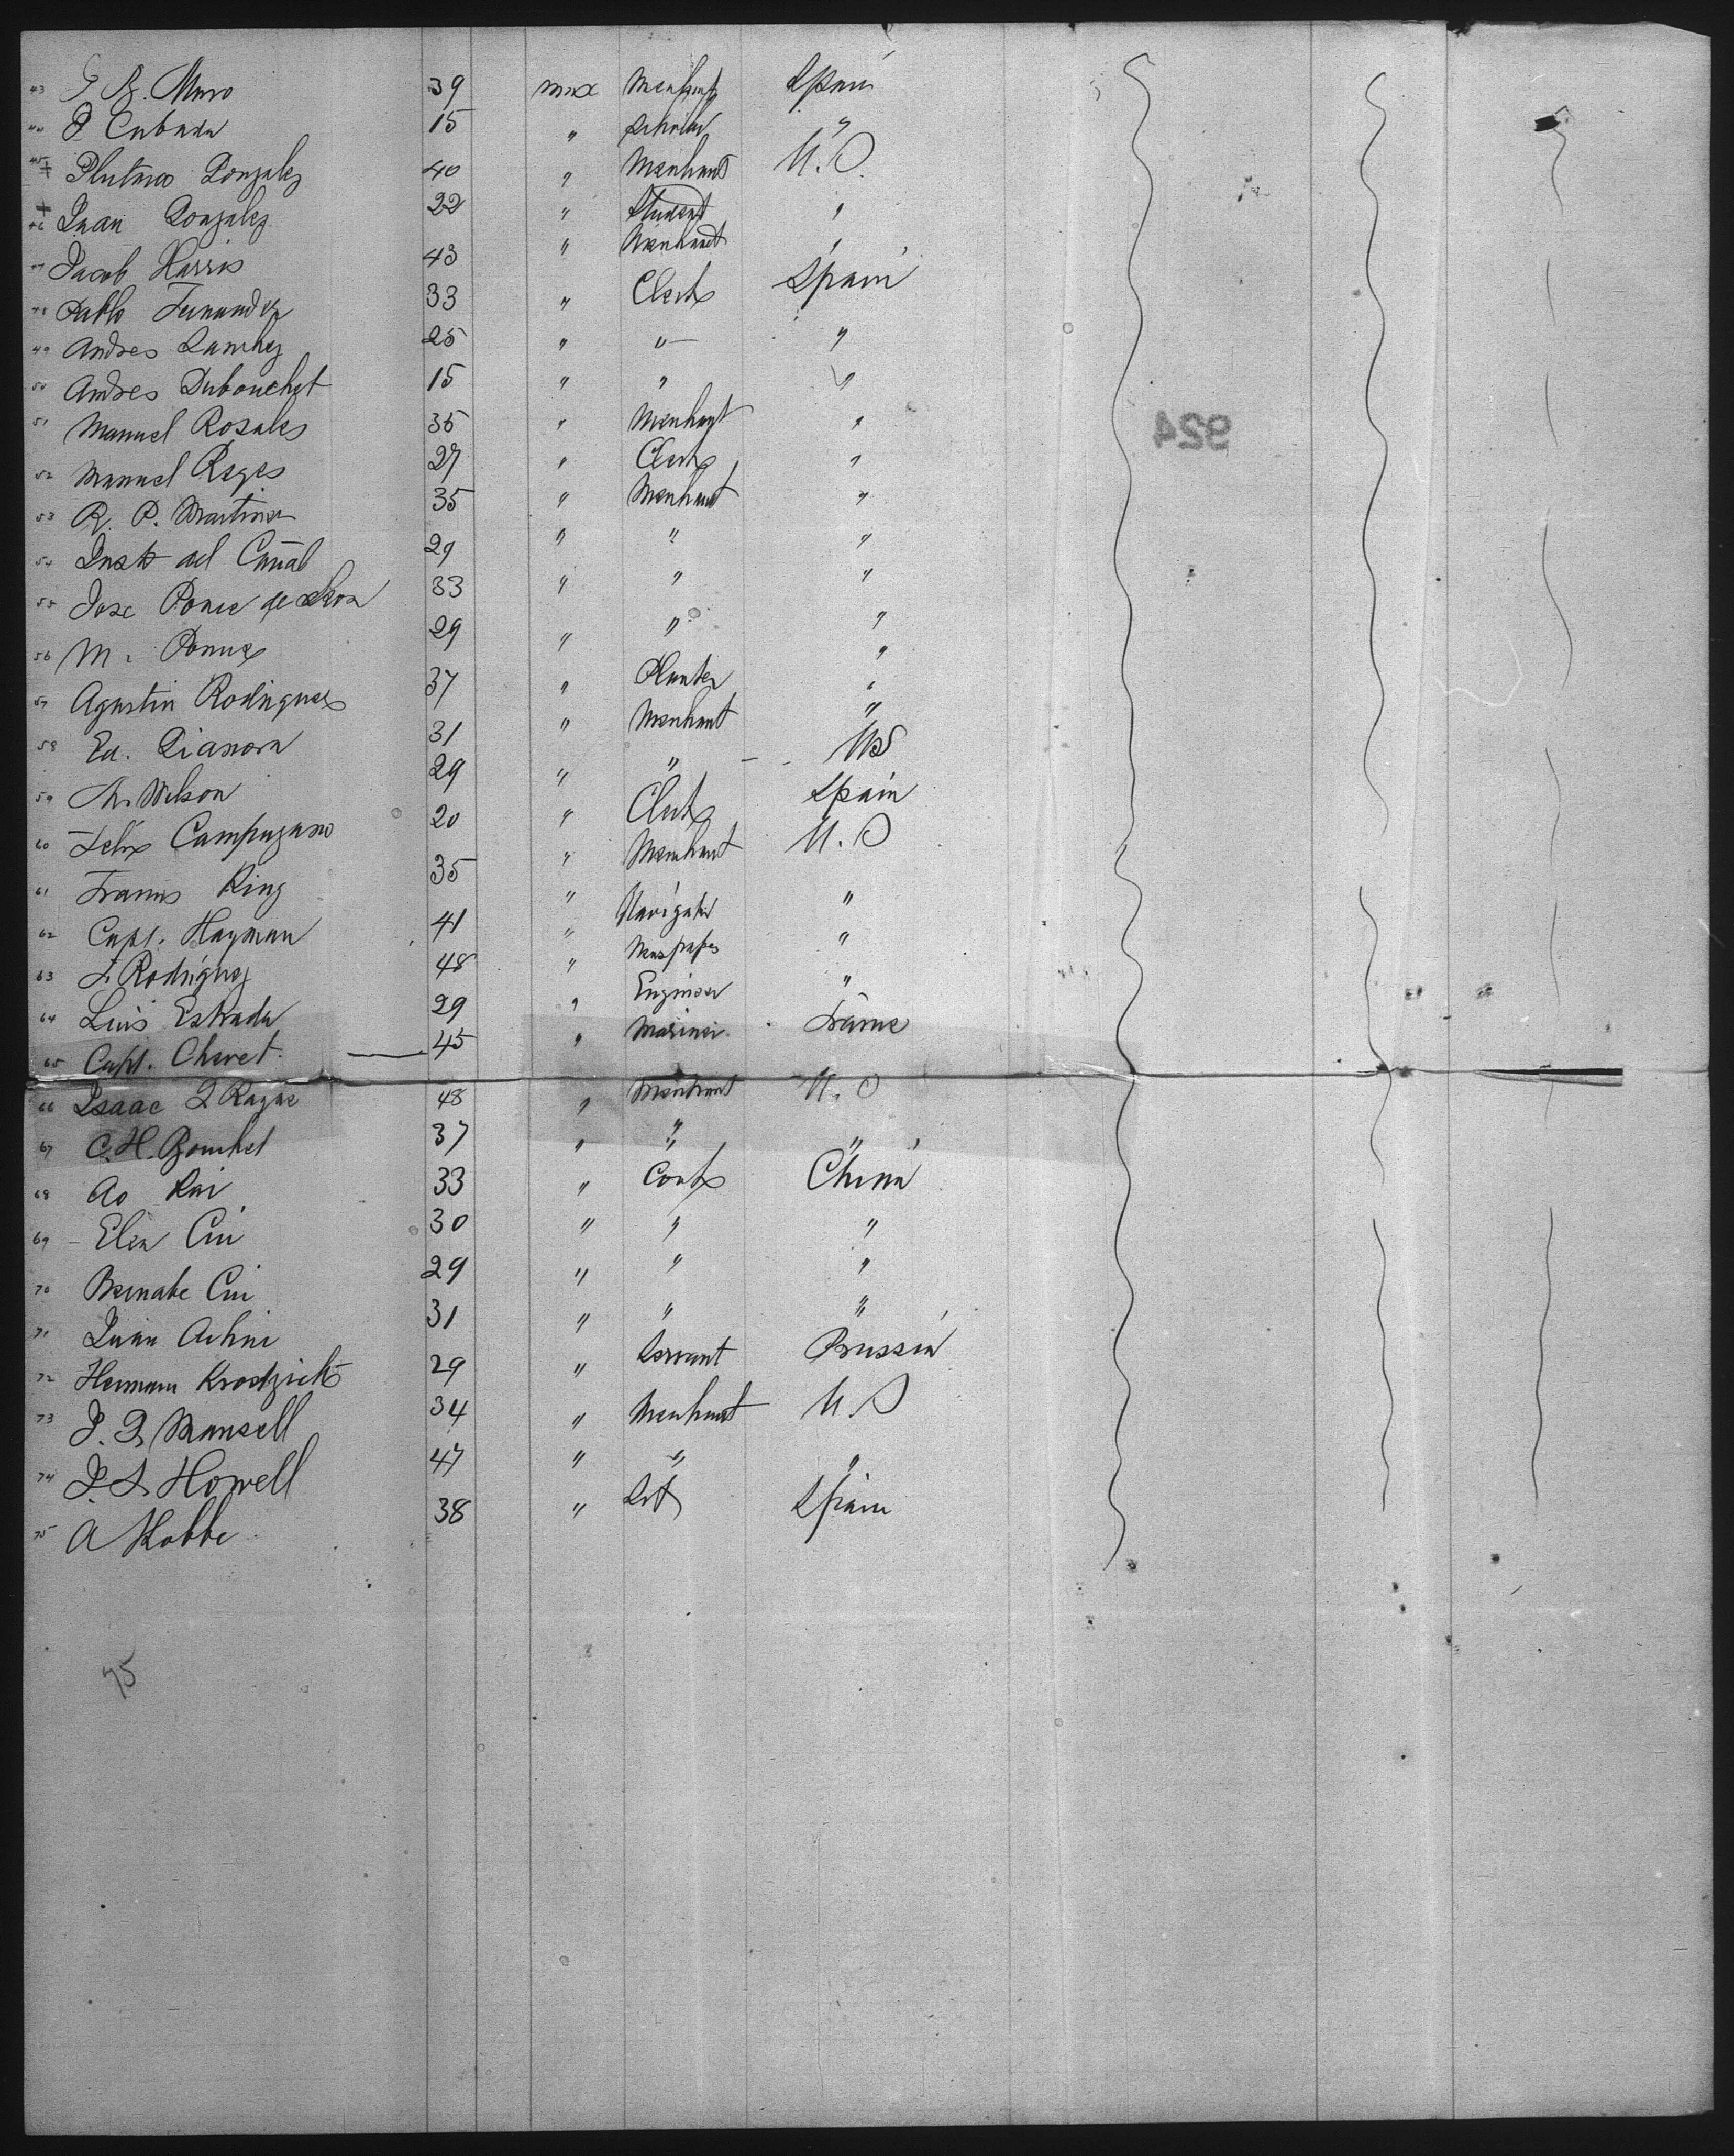 43 G B. Muro 39 max Merchant Spain
44 P Cubada 15 " Scholar "
45 + Plutarco Gonzalez 40 " Merchant U.S.
46 + Juan Gonzalez 22 " Student "
47 Jacob Harris 43 " Merchant "
48 Pablo Fernandez 33 " Clerk Spain
49 Andres Sanchez 25 " " "
50 Andres Dubouchet 15 " " "
51 Manuel Rosales 35 " Merchant "
52 Manuel Reyes 27 " Clerk "
53 R. P. Martinez 35 " Merchant "
54 Justo del Cañal 29 " " "
55 Jose Ponce de Leon 33 " " "
56 M. 29 " " "
57 Agustin Rodriguez 37 " Planter "
58 Ed. 31 " Merchant "
59 Wilson 29 " " US
60 Felix Campuzano 20 " Clerk Spain
61 Francis King 35 " Merchant U.S
62 Capt. Hayman 41 " Navigator "
63 J. Rodriguez 48 " Newspaper "
64 Luis Estrada 29 " Engineer "
65 Capt. Chevet 45 " Mariner France
66 Isaac 48 " Merchant U.S
67 C. H. 37 " " "
68 Ao Kai 33 " Cook China
69 Elen Cui 30 " " "
70 Bernabe Cui 29 " " "
71 Juan Achin 31 " " "
72 Hermann 29 " Servant Prussia
73 J. Q. Mansell 34 " Merchant U.S
74 J. S. Howell 47 " " "
75 A Kobbe 38 " Spain
75
924